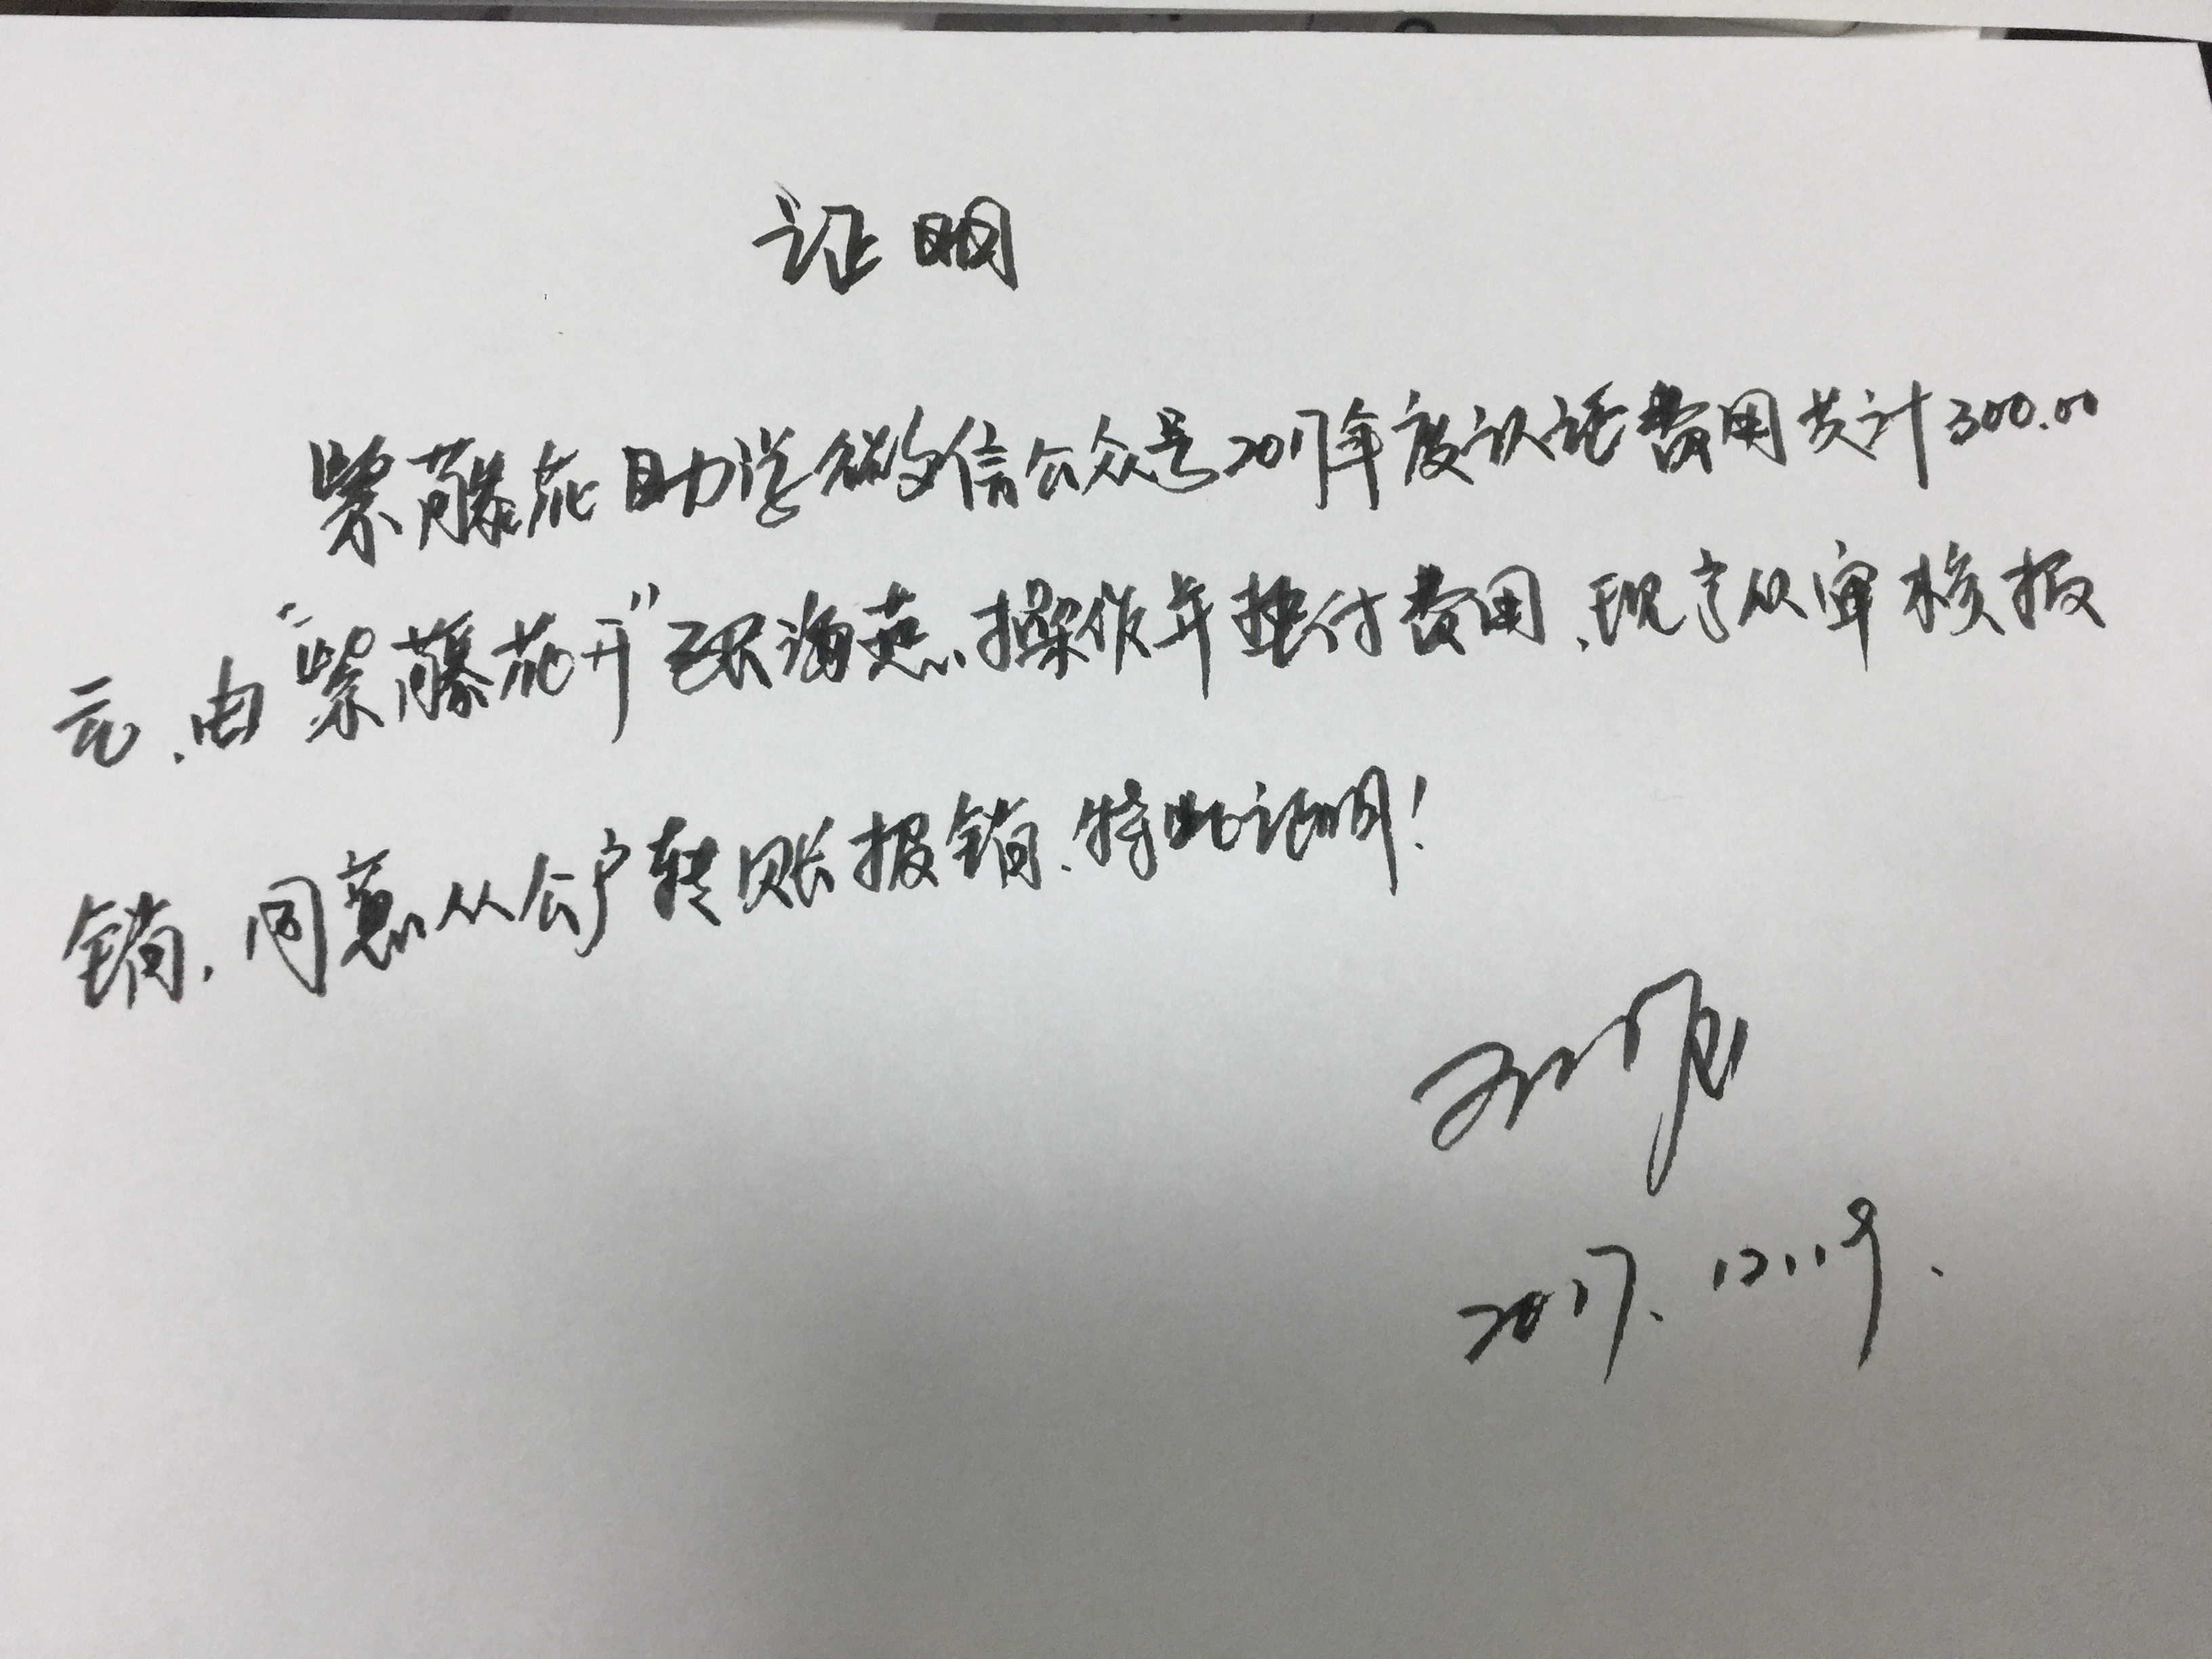 证明
紫藤花助学微信公众号2017年度认证费用共计300.00
元、由"紫藤花开"张海燕操作并垫付费用、现予以审核报
销，同意从公户转账报销、特此证明！
2017.12.19.